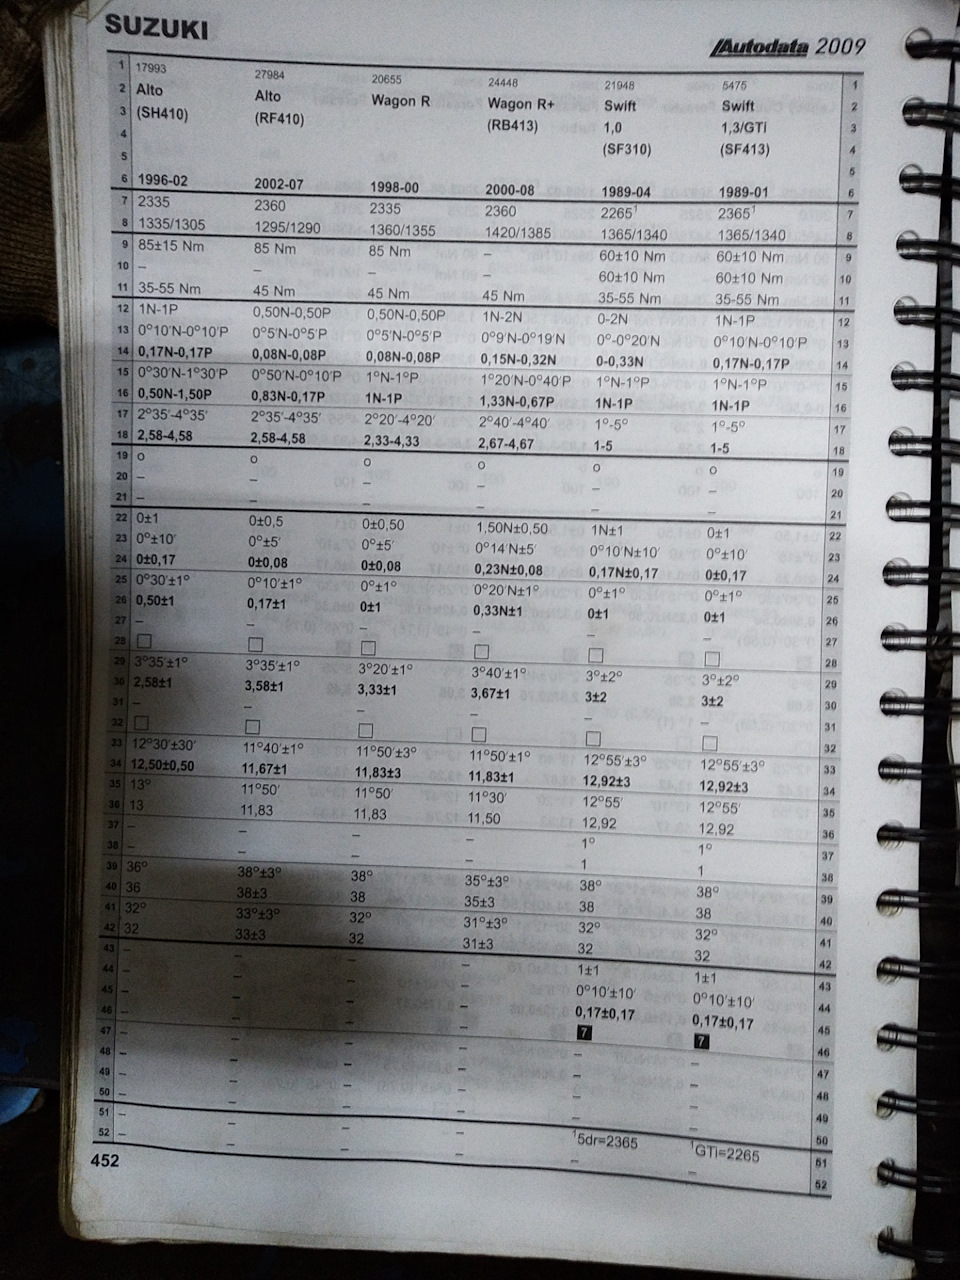 SUZUKI
Autodata 2009
1 17993 27984 20655 24448 21948 5475 1
2 Alto Alto Wagon R Wagon R+ Swift Swift 2
3 (SH410) (RF410) (RB413) 1,0 1,3/GTi 3
4 (SF310) (SF413) 4
5 5
6 1996-02 2002-07 1998-00 2000-08 1989-04 1989-01 6
7 2335 2360 2335 2360 2265¹ 2365¹ 7
8 1335/1305 1295/1290 1360/1355 1420/1385 1365/1340 1365/1340 8
9 85±15 Nm 85 Nm 85 Nm – 60±10 Nm 60±10 Nm 9
10 – – – – 60±10 Nm 60±10 Nm 10
11 35-55 Nm 45 Nm 45 Nm 45 Nm 35-55 Nm 35-55 Nm 11
12 1N-1P 0,50N-0,50P 0,50N-0,50P 1N-2N 0-2N 1N-1P 12
13 0º10'N-0º10'P 0º5'N-0º5'P 0º5'N-0º5'P 0º9'N-0º19'N 0º-0º20'N 0º10'N-0º10'P 13
14 0,17N-0,17P 0,08N-0,08P 0,08N-0,08P 0,15N-0,32N 0-0,33N 0,17N-0,17P 14
15 0º30'N-1º30'P 0º50'N-0º10'P 1ºN-1ºP 1º20'N-0º40'P 1ºN-1ºP 1ºN-1ºP 15
16 0,50N-1,50P 0,83N-0,17P 1N-1P 1,33N-0,67P 1N-1P 1N-1P 16
17 2º35'-4º35' 2º35'-4º35' 2º20'-4º20' 2º40'-4º40' 1º-5º 1º-5º 17
18 2,58-4,58 2,58-4,58 2,33-4,33 2,67-4,67 1-5 1-5 18
19 o o o o o o 19
20 – – – – – – 20
21 – – – – – – 21
22 0±1 0±0,5 0±0,50 1,50N±0,50 1N±1 0±1 22
23 0º±10' 0º±5' 0º±5' 0º14'N±5' 0º10'N±10' 0º±10' 23
24 0±0,17 0±0,08 0±0,08 0,23N±0,08 0,17N±0,17 0±0,17 24
25 0º30'±1º 0º10'±1º 0º±1º 0º20'N±1º 0º±1º 0º±1º 25
26 0,50±1 0,17±1 0±1 0,33N±1 0±1 0±1 26
27 – – – – – – 27
28 □ □ □ □ □ □ 28
29 3º35'±1º 3º35'±1º 3º20'±1º 3º40'±1º 3º±2º 3º±2º 29
30 2,58±1 3,58±1 3,33±1 3,67±1 3±2 3±2 30
31 – – – – – – 31
32 □ □ □ □ □ □ 32
33 12º30'±30' 11º40'±1º 11º50'±3º 11º50'±1º 12º55'±3º 12º55'±3º 33
34 12,50±0,50 11,67±1 11,83±3 11,83±1 12,92±3 12,92±3 34
35 13º 11º50' 11º50' 11º30' 12º55' 12º55' 35
36 13 11,83 11,83 11,50 12,92 12,92 36
37 – – – – 1º 1º 37
38 – – – – 1 1 38
39 36º 38º±3º 38º 35º±3º 38º 38º 39
40 36 38±3 38 35±3 38 38 40
41 32º 33º±3º 32º 31º±3º 32º 32º 41
42 32 33±3 32 31±3 32 32 42
43 – – – – 1±1 1±1 43
44 – – – – 0º10'±10' 0º10'±10' 44
45 – – – – 0,17±0,17 0,17±0,17 45
46 – – – – 7 7 46
47 – – – – – – 47
48 – – – – – – 48
49 – – – – – – 49
50 – – – – – – 50
51 – – – – ¹5dr=2365 ¹GTi=2265 51
52 – – – – – – 52
452